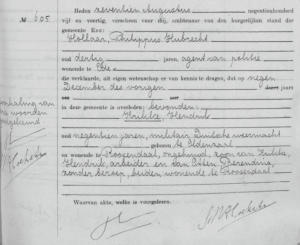 No 605
Heden zeventien Augustus negentienhonderd
vijf en veertig, verscheen voor mij, ambtenaar van den burgerlijken stand der
gemeente Ede:
Hollaar, Philippus Hubrecht
oud dertig jaren, agent van politie
wonende te Ede
die verklaarde, uit eigen wetenschap er van kennis te dragen, dat op negen
December des vorigen jaars
in deze gemeente is overleden: bevonden:
Hendrik
oud negentien jaren, militair Duitsche weermacht
geboren te Oldenzaal
en wonende te Roosendaal, ongehuwd, zoon van
Hendrik, arbeider en van
zonder beroep, beiden wonende te Roosendaal
Waarvan akte, welke is voorgelezen.